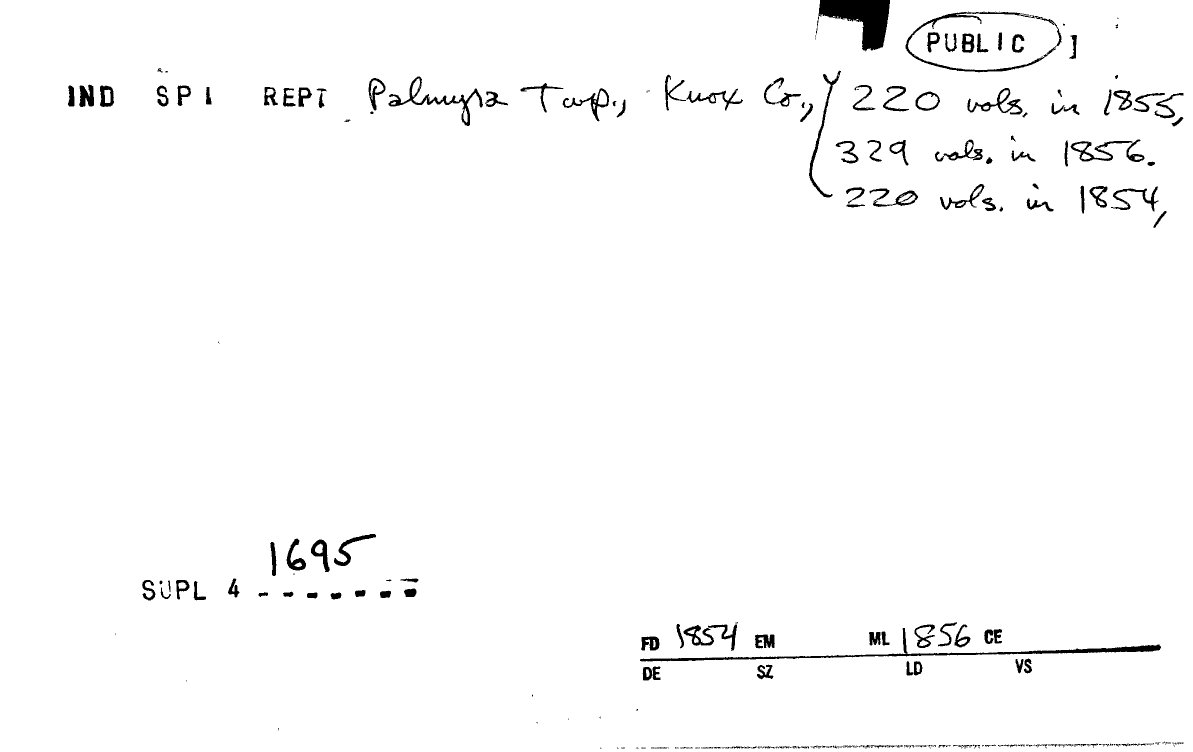 PUBLIC ]
IND SPI REPT Palmyra Twp., Knox Co., 220 vols. in 1855,
329 vols. in 1856.
220 vols. in 1854,
1695
SUPL 4 - - - - - - -
FD 1854 EM ML 1856 CE
DE SZ LD VS